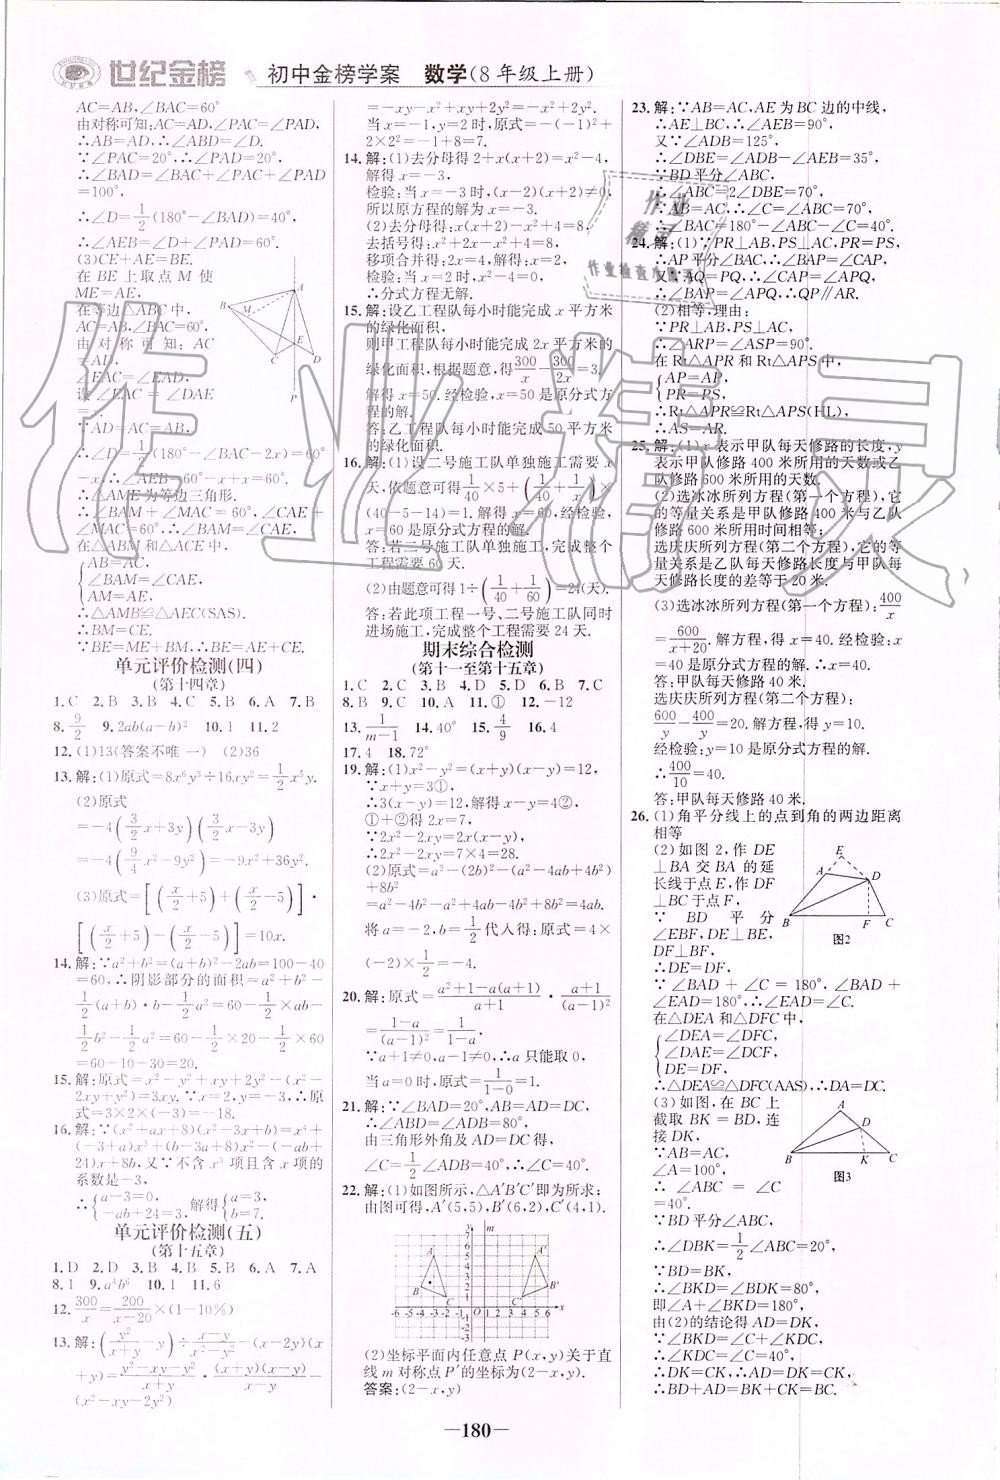 世纪金榜 初中金榜学案 数学(8年级上册)
AC=AB,∠BAC=60°
由对称可知:AC=AD,∠PAC=∠PAD,
∴AB=AD,∴∠ABD=∠D.
∵∠PAC=20°,∴∠PAD=20°,
∴∠BAD=∠BAC+∠PAC+∠PAD
=100°,
∴∠D=1/2(180°-∠BAD)=40°,
∴∠AEB=∠D+∠PAD=60°.
(3)CE+AE=BE.
在 BE 上取点 M 使
ME=AE,
在等边△ABC中,
由对称可知:AC
=AD,
∠EAC=∠EAD,
设∠EAC=∠DAE
=x.
∵AD=AC=AB,
∴∠D=1/2(180°-∠BAC-2x)=60°
-x,∴∠AEB=60°-x+x=60°.
∴△AME为等边三角形.
∴∠BAM+∠MAC=60°,∠CAE+
∠MAC=60°,∴∠BAM=∠CAE,
在△ABM和△ACE中,
AB=AC,
∠BAM=∠CAE,
AM=AE,
∴△AMB≌△AEC(SAS).
∴BM=CE.
∵BE=ME+BM,∴BE=AE+CE.
单元评价检测(四)
(第十四章)
1.C 2.B 3.B 4.C 5.B 6.A 7.B
8.9/2 9.2ab(a-b)² 10.1 11.2
12.(1)13(答案不唯一) (2)36
13.解:(1)原式=8x⁶y³÷16xy²=1/2x⁵y.
(2)原式
=-4(3/2x+3y)(3/2x-3y)
=-4(9/4x²-9y²)=-9x²+36y².
(3)原式=[(x/2+5)+(x/2-5)]·
[(x/2+5)-(x/2-5)]=10x.
14.解:∵a²+b²=(a+b)²-2ab=100-40
=60,∴阴影部分的面积=a²+b²-
1/2(a+b)·b-1/2a²=60-1/2×ab-
1/2b²-1/2a²=60-1/2×20-1/2×60=
60-10-30=20.
15.解:原式=x²-y²+xy+2y²-(x²-
2xy+y²)=3xy.∵x=2,y=-3,∴原
式=3×2×(-3)=-18.
16.解:∵(x²+ax+8)(x²-3x+b)=x⁴+
(-3+a)x³+(b-3a+8)x²-(-ab+
24)x+8b,又∵不含x³项且含x项的
系数是-3,
∴{a-3=0, -ab+24=3, 解得{a=3, b=7.
单元评价检测(五)
(第十五章)
1.D 2.D 3.B 4.B 5.B 6.A 7.A
8.1 9.a⁴b⁶ 10.1 11.6
12.300/x=200/(x-20)×(1-10%)
13.解:(y²/(x-y)-y)÷(x-y)/(x²-y²)-(x-2y)(x
(x²-xy-2y²)
=-xy-x²+xy+2y²=-x²+2y².
当x=-1,y=2时,原式=-(-1)²+
2×2²=-1+8=7.
14.解:(1)去分母得2+x(x+2)=x²-4,
解得x=-3,
检验:当x=-3时,(x-2)(x+2)≠0,
所以原方程的解为x=-3.
(2)去分母得:x-2(x-2)+4=8,
去括号得:x-2x+4+4=8,
移项合并得:2x=4,解得:x=2,
检验:当x=2时,x²-4=0,
∴分式方程无解.
15.解:设乙工程队每小时能完成x平方米
的绿化面积,
则甲工程队每小时能完成2x平方米的
绿化面积,根据题意,得300/x-300/2x=3.
解得x=50.经检验,x=50是原分式方
程的解.
答:乙工程队每小时能完成50平方米的
绿化面积.
16.解:(1)设二号施工队单独施工需要x
天,依题意可得1/40×5+(1/40+1/x)×
(40-5-14)=1.解得x=60.经检验,
x=60是原分式方程的解.
答:若二号施工队单独施工,完成整个工
程需要60天.
(2)由题意可得1÷(1/40+1/60)=24(天).
答:若此项工程一号、二号施工队同时
进场施工,完成整个工程需要24天.
期末综合检测
(第十一至第十五章)
1.C 2.C 3.B 4.D 5.D 6.B 7.C
8.B 9.C 10.A 11.① 12.-12
13.1/(m-1) 14.40° 15.4/9 16.4
17.4 18.72°
19.解:(1)x²-y²=(x+y)(x-y)=12,
∵x+y=3①,
∴3(x-y)=12,解得x-y=4②,
①+②得2x=7,
∵2x²-2xy=2x(x-y),
∴2x²-2xy=7×4=28.
(2)原式=a²-(2b)²-(2a²-4ab+4b²)
+8b²
=a²-4b²-a²+4ab-4b²+8b²=4ab.
将a=-2,b=1/2代入得:原式=4×
(-2)×1/2=-4.
20.解:原式=(a²+1-a(a+1))/(a+1)·(a+1)/(a-1)²
=(1-a)/(a-1)²=1/(1-a).
∵a+1≠0,a-1≠0,∴a只能取0,
当a=0时,原式=1/(1-0)=1.
21.解:∵∠BAD=20°,AB=AD=DC,
∴∠ABD=∠ADB=80°,
由三角形外角及AD=DC得,
∠C=1/2∠ADB=40°,∴∠C=40°.
22.解:(1)如图所示,△A'B'C'即为所求:
由图可得,A'(5,5),B'(6,2),C'(4,1).
(2)坐标平面内任意点P(x,y)关于直
线m对称点P'的坐标为(2-x,y).
答案:(2-x,y)
23.解:∵AB=AC,AE为BC边的中线,
∴AE⊥BC,∴∠AEB=90°,
又∵∠ADB=125°,
∴∠DBE=∠ADB-∠AEB=35°,
∵BD平分∠ABC,
∴∠ABC=2∠DBE=70°,
∵AB=AC,∴∠C=∠ABC=70°,
∴∠BAC=180°-∠ABC-∠C=40°.
24.解:(1)∵PR⊥AB,PS⊥AC,PR=PS,
∴AP平分∠BAC,∴∠BAP=∠CAP,
又∵AQ=PQ,∴∠CAP=∠APQ,
∴∠BAP=∠APQ,∴QP∥AR.
(2)相等,理由:
∵PR⊥AB,PS⊥AC,
∴∠ARP=∠ASP=90°.
在Rt△APR和Rt△APS中,
AP=AP,
PR=PS,
∴Rt△APR≌Rt△APS(HL),
∴AS=AR.
25.解:(1)x表示甲队每天修路的长度,y
表示甲队修路400米所用的天数或乙
队修路600米所用的天数.
(2)选冰冰所列方程(第一个方程),它
的等量关系是甲队修路400米与乙队
修路600米所用时间相等;
选庆庆所列方程(第二个方程),它的等
量关系是乙队每天修路长度与甲队每
天修路长度的差等于20米.
(3)选冰冰所列方程(第一个方程):400/x
=600/(x+20).解方程,得x=40.经检验:x
=40是原分式方程的解.∴x=40.
答:甲队每天修路40米.
选庆庆所列方程(第二个方程):
600/y-400/y=20.解方程,得y=10.
经检验:y=10是原分式方程的解.
∴400/10=40.
答:甲队每天修路40米.
26.(1)角平分线上的点到角的两边距离
相等
(2)如图2,作DE
⊥BA交BA的延
长线于点E,作DF
⊥BC于点F,
∵BD平分
∠EBF,DE⊥BE,
DF⊥BF,
∴DE=DF,
∵∠BAD+∠C=180°,∠BAD+
∠EAD=180°,∴∠EAD=∠C.
在△DEA和△DFC中,
∠DEA=∠DFC,
∠DAE=∠DCF,
DE=DF,
∴△DEA≌△DFC(AAS),∴DA=DC.
(3)如图,在BC上
截取BK=BD,连
接DK,
∵AB=AC,
∠A=100°,
∴∠ABC=∠C
=40°.
∵BD平分∠ABC,
∴∠DBK=1/2∠ABC=20°,
∵BD=BK,
∴∠BKD=∠BDK=80°,
即∠A+∠BKD=180°,
由(2)的结论得AD=DK,
∵∠BKD=∠C+∠KDC,
∴∠KDC=∠C=40°,
∴DK=CK,∴AD=DK=CK,
∴BD+AD=BK+CK=BC.
图2
图3
—180—
作业精灵